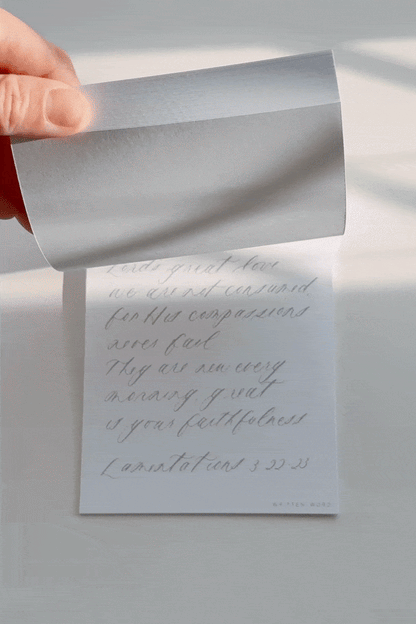 Lord's great love
we are not consumed,
for His compassions
never fail
They are new every
morning, great
is your faithfulness
Lamentations 3 22-23